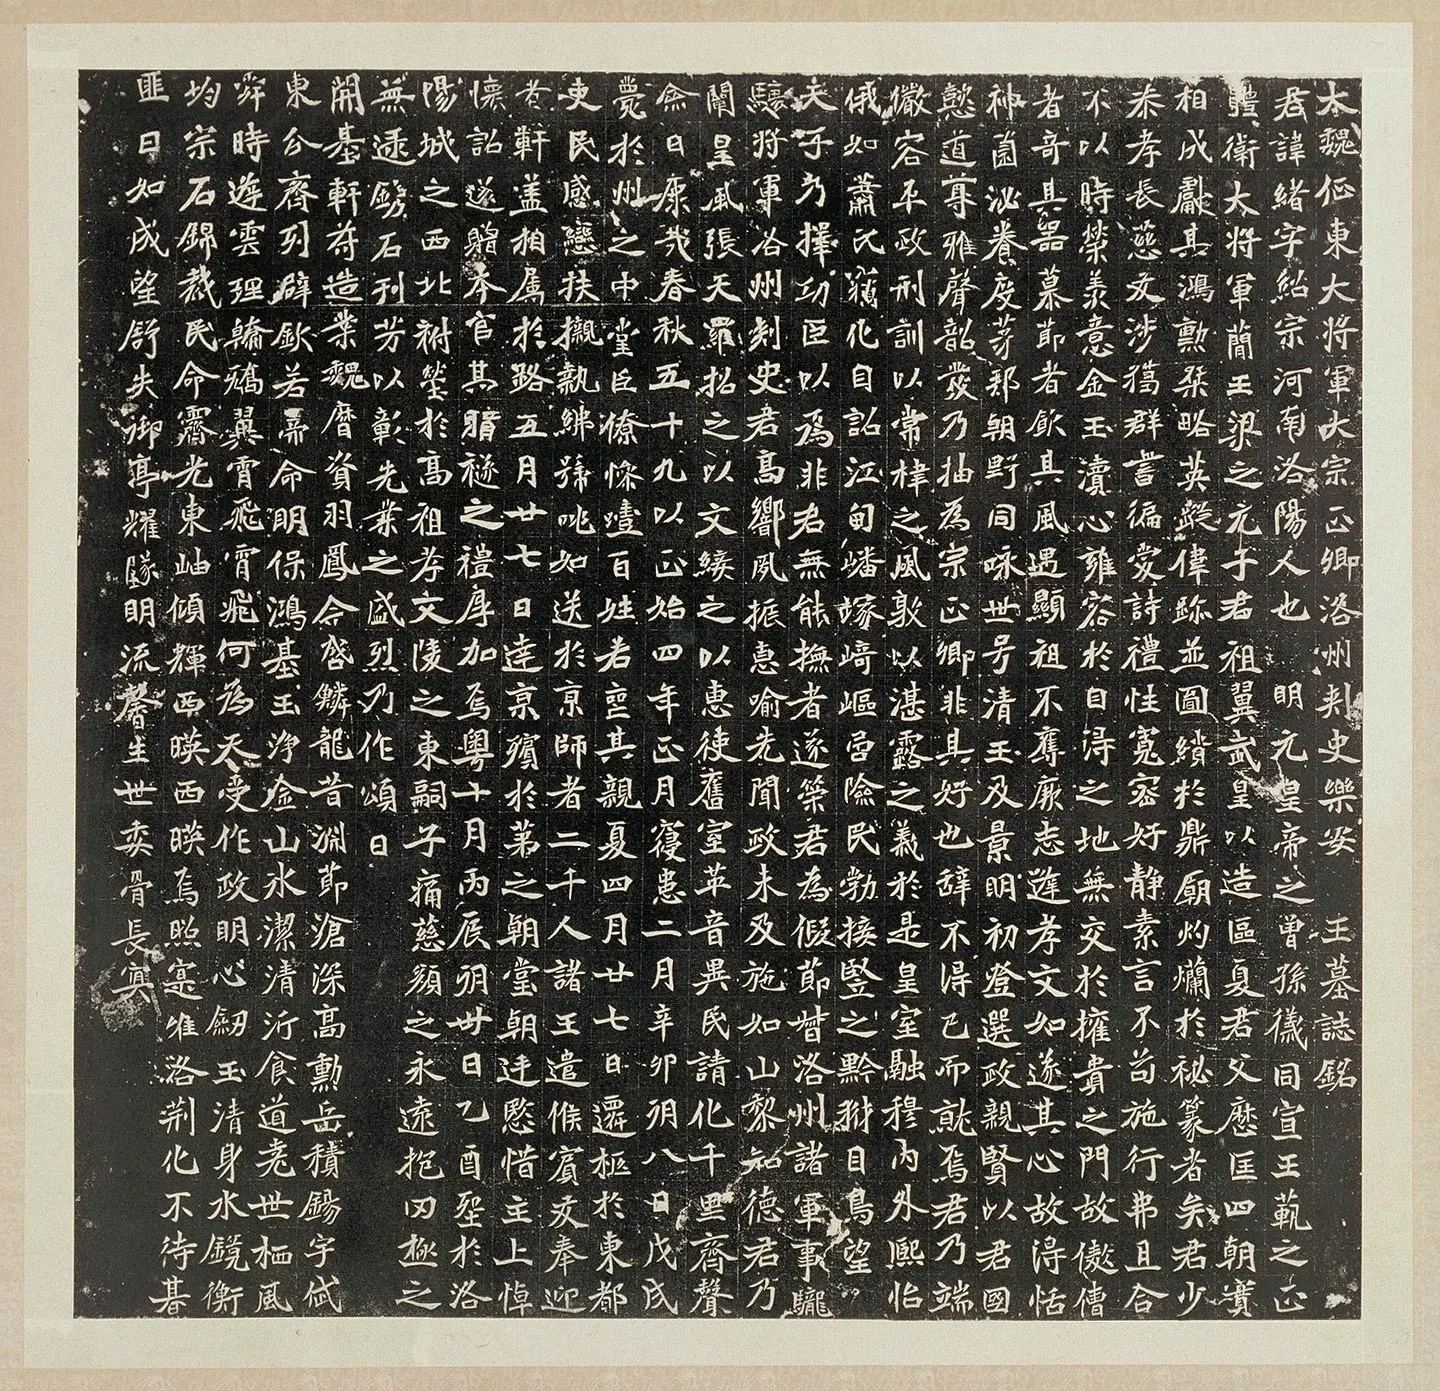 大魏征東大將軍大宗正卿洛州刺史樂安 王墓誌銘
君諱緒字紹宗河南洛陽人也 明元皇帝之曾孫儀同宣王範之正
體衛大將軍簡王梁之元子君祖翼武皇以造區夏君父歷匡四朝寔
相成獻其鴻勳桀略英蹤偉跡並圖繢於鼎廟灼爛於秘篆者矣君少
柰孝長慈友涉獦群書徧愛詩禮性寬密好靜素言不苟施行弗且合
不以時榮羨意金玉瀆心雍容於自得之地無交於權貴之門故傲僐
者奇其器慕節者飲其風遇顯祖不奪厥志逮孝文如遂其心故得恬
神園泌養度茅邦朝野同咏世号清王及景明初登選政親賢以君國
懿道尊雅聲韶發乃抽為宗正卿非其好也辭不得已而就焉君乃端
儼容平政刑訓以常棣之風敦以湛露之義於是皇室融穆內外熙怡
俄如蕭氏竊化自詔江甸嶓塚﨑嶇嵒險民勃接豎之黔獣目鳥望
天子乃擇功臣以為非君無能撫者遂策君為假節督洛州諸軍事龍
驤將軍洛州刺史君高嚮夙振惠喻先聞政未及施如山黎知德君乃
闡皇風張天羅招之以文綏之以惠使舊室革音異民請化千里齊聲
僉曰康哉春秋五十九以正始四年正月寑患二月辛卯朔八日戊戌
薨於州之中堂臣僚慘噎百姓若喪其親夏四月廿七日遷柩於東都
吏民感戀扶櫬執紼號咷如送於京師者二千人諸王遣候賓友奉迎
者軒盖相属於路五月廿七日達京殯於第之朝堂朝廷愍惜主上悼
懷詔遂贈本官其賵襚之禮厚加焉粵十月丙辰朔卅日乙酉窆於洛
陽城之西北祔塋於高祖孝文陵之東嗣子痛慈顏之永遠抱罔極之
無逮鐫石刊芳以彰先業之盛烈乃作頌曰
開基軒苻造業魏曆資羽鳳令啓鱗龍昔渊節滄深高勳岳積錫字弑
東分齊列辟欽若帝命明保鴻基玉淨金山水潔清沂食道堯世栖風
舜時遊雲理翰矯翼霄飛霄飛何為天受作政明心劒玉清身水鏡衡
均宗石錦裁民命霽光東岫傾輝西暎西暎焉照寔維洛荆化不待朞
匪日如成望舒失御亭燿隧明流馨生世委骨長冥